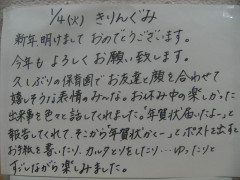 1/4(火) きりんぐみ
新年明けまして おめでとうございます。
今年も よろしく お願い致します。
久しぶりの保育園でお友達と顔を合わせて
嬉しそうな表情のみんな。お休み中の楽しかった
出来事を色々と話してくれました。"年賀状届いたよー"と
報告してくれて、そこから"年賀状かくー"とポストと出すと
お手紙を書いたり、カルタとりをしたり… ゆったりと
すごしながら楽しみました。